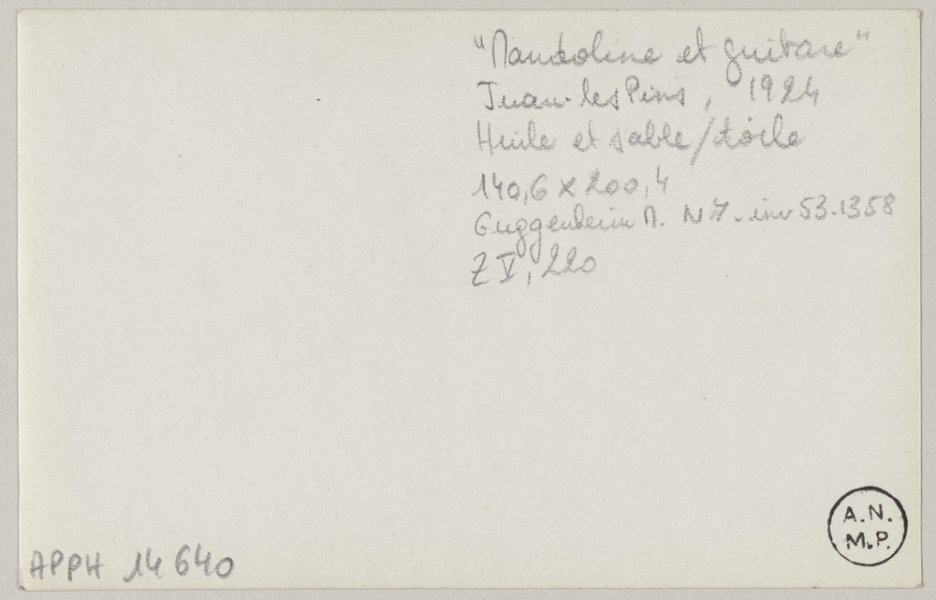 "Mandoline et guitare"
Juan-les Pins, 1924
Huile et sable/toile
140,6 x 200,4
Guggenheim M. NY. inv 53.1358
Z V, 220
A.N.
M.P.
APPH 14640